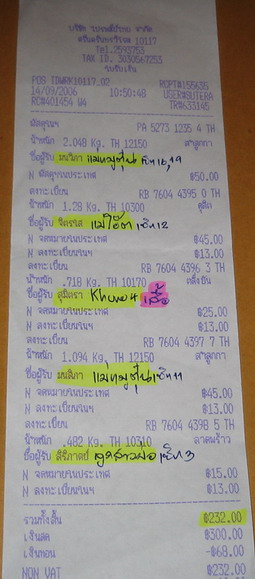 บริษัท ไปรษณีย์ไทย จำกัด
ศรีนครินทรวิโรฒ 10117
Tel.2593753
TAX ID. 3030567253
ใบรับเงิน
POS TDWRK10117.02 RCPT#155635
14/09/2006 10:50:48 USER#SUTERA
RC#401454 W4 TR#633145
พัสดุฯ PA 5273 1235 4 TH
น้ำหนัก 2.048 Kg. TH 12150 ลำลูกกา
ชื่อผู้รับ
N พัสดุฯในประเทศ ฿50.00
ลงทะเบียน RB 7604 4395 0 TH
น้ำหนัก 1.28 Kg. TH 10300 ดุสิต
ชื่อผู้รับ จิตรลร แม่โอ๋ต เซ็ท 12
N จดหมายในประเทศ ฿45.00
N ลงทะเบียนฯ ฿13.00
ลงทะเบียน RB 7604 4396 3 TH
น้ำหนัก .718 Kg. TH 10170 ตลิ่งชัน
ชื่อผู้รับ สุมิตรา Khun 4 เสื้อ
N จดหมายในประเทศ ฿25.00
N ลงทะเบียนฯ ฿13.00
ลงทะเบียน RB 7604 4397 7 TH
น้ำหนัก 1.094 Kg. TH 12150 ลำลูกกา
ชื่อผู้รับ
N จดหมายในประเทศ ฿45.00
N ลงทะเบียนฯ ฿13.00
ลงทะเบียน RB 7604 4398 5 TH
น้ำหนัก .482 Kg. TH 10310 ลาดพร้าว
ชื่อผู้รับ
N จดหมายในประเทศ ฿15.00
N ลงทะเบียนฯ ฿13.00
รวมทั้งสิ้น ฿232.00
เงินสด ฿300.00
เงินทอน -฿68.00
NON VAT ฿232.00